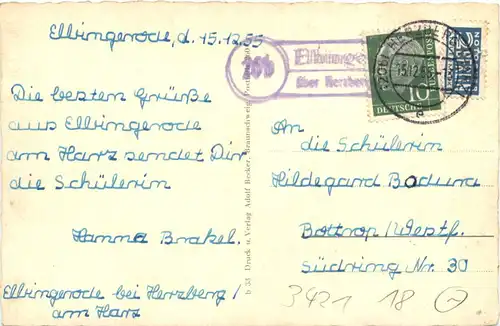 Elbingerode, d. 15.12.55
20b
Elbingerode
über Herzberg
10
DEUTSCHE
BUNDESPOST
15.12.55
Die besten Grüße
aus Elbingerode
am Harz sendet Dir
die Schülerin
Hanna Brakel.
Elbingerode bei Herzberg /
am Harz
b 53 Druck u. Verlag Adolf Becker, Braunschweig
An
die Schülerin
Hildegard Bodura
Bottrop/Westf.
Südring Nr. 30
3421 18